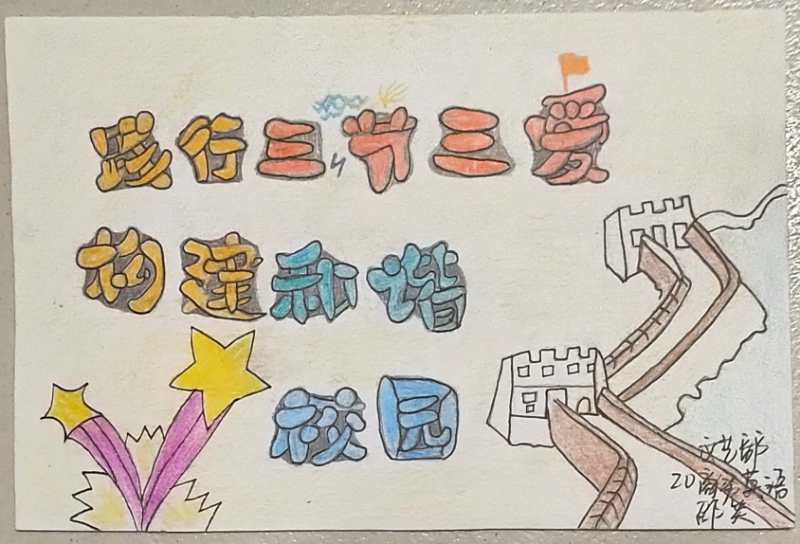 践行三节三爱
构建和谐
校园
文艺部
20商务英语